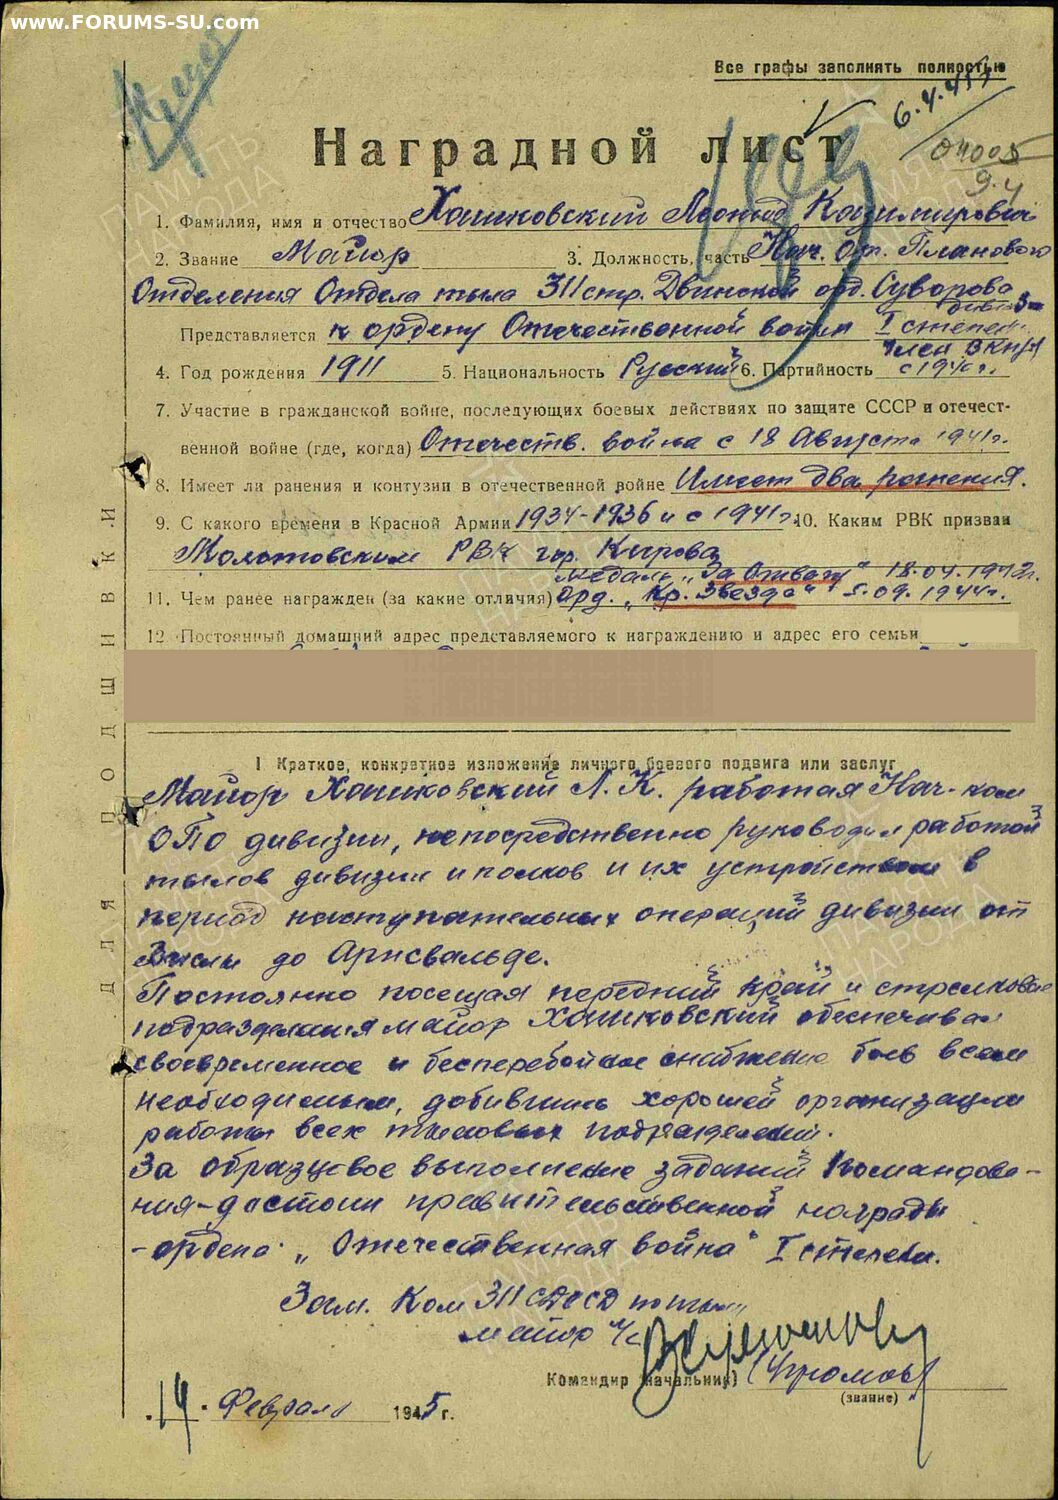 www.FORUMS-SU.com
Все графы заполнять полностью
6.4.45
04005
9.4
Наградной лист
1. Фамилия, имя и отчество Хашковский Леонид Казимирович
2. Звание Майор 3. Должность, часть Нач. Отд. Планового
Отделения Отдела тыла 311 стр. Двинской орд. Суворова
дивизии
Представляется к ордену Отечественной войны I степени
Член ВКП/б
4. Год рождения 1911 5. Национальность Русский 6. Партийность с 194 г.
7. Участие в гражданской войне, последующих боевых действиях по защите СССР и отечест-
венной войне (где, когда) Отечеств. война с 18 Августа 1941 г.
8. Имеет ли ранения и контузии в отечественной войне Имеет два ранения.
9. С какого времени в Красной Армии 1934-1936 и с 1941 г. 10. Каким РВК призван
Молотовским РВК гор. Кирова
медаль „За Отвагу" 18.04.1942 г.
11. Чем ранее награжден (за какие отличия) Орд. „Кр. Звезда" 5.09.1944 г.
12 Постоянный домашний адрес представляемого к награждению и адрес его семьи
ДЛЯ ПОДШИВКИ
I Краткое, конкретное изложение личного боевого подвига или заслуг
Майор Хашковский Л. К. работая Нач-ком
ОПО дивизии, непосредственно руководил работой
тылов дивизии и полков и их устройством в
период наступательных операций дивизии от
Вислы до Арнсвальде.
Постоянно посещая передний край и стрелковые
подразделения майор Хашковский обеспечивал
своевременное и бесперебойное снабжение боев всем
необходимым, добившись хорошей организации
работы всех тыловых подразделений.
За образцовое выполнение заданий Командова-
ния - достоин правительственной награды
- ордена „Отечественная война" I степени.
Зам. Ком 311 СДОСД по тылу
майор и/с
Командир (начальник) (Чромов)
(звание)
14. Февраля 1945 г.
ПАМЯТЬ НАРОДА